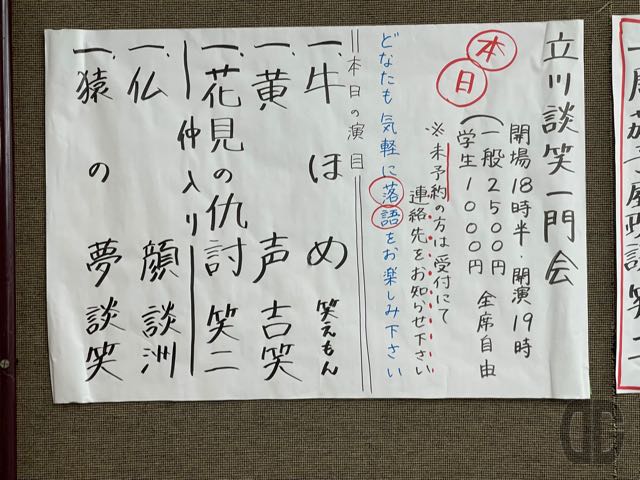 立川談笑一門会
本日
開場18時半・開演19時
(一般2500円 全席自由
学生1000円
※未予約の方は受付にて
連絡先をお知らせ下さい
どなたも気軽に落語をお楽しみ下さい
本日の演目
一、牛ほめ 笑えもん
一、黄声 吉笑
一、花見の仇討 笑二
仲入り
一、仏顔 談洲
一、猿の夢 談笑